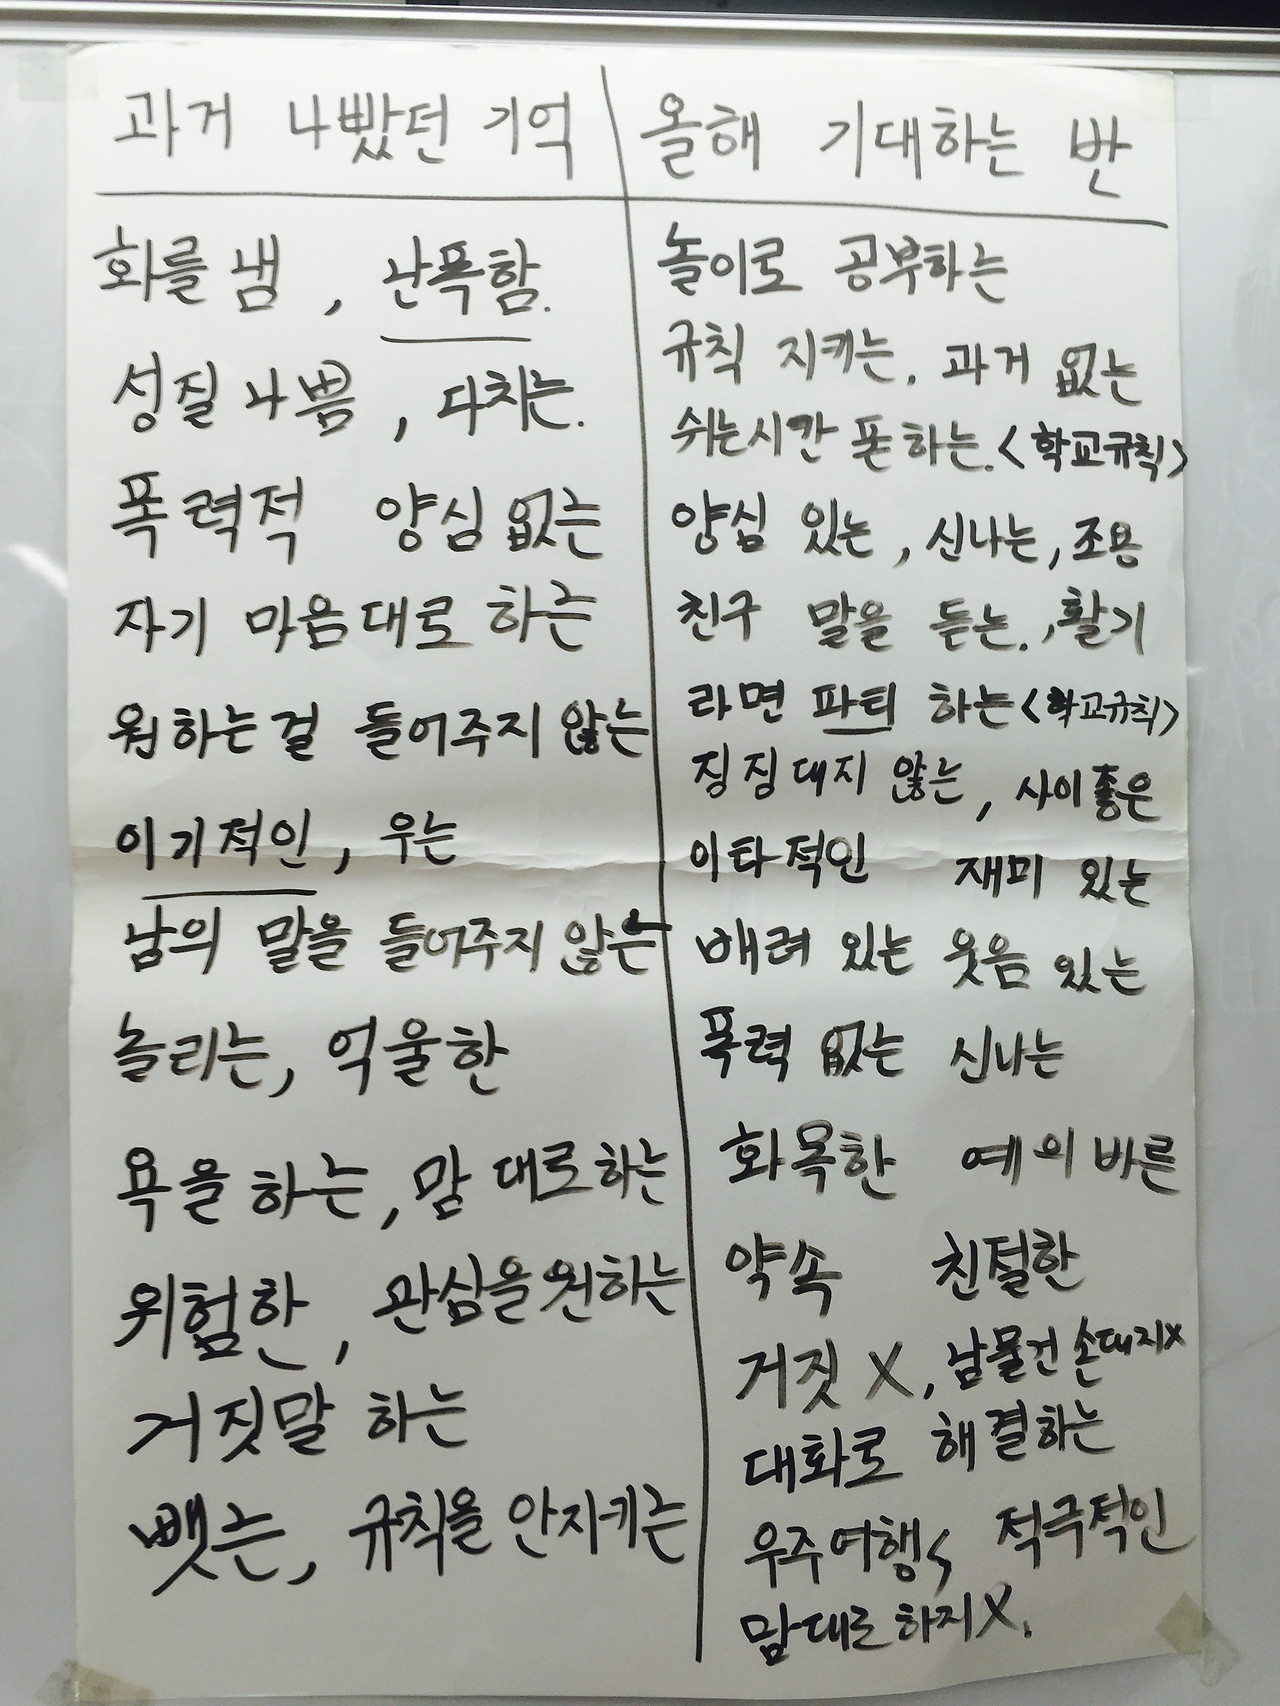 과거 나빴던 기억
화를 냄, 난폭함.
성질 나쁨, 다치는.
폭력적 양심 없는
자기 마음대로 하는
원하는걸 들어주지 않는
이기적인, 우는
남의 말을 들어주지 않는
놀리는, 억울한
욕을 하는, 맘 대로하는
위험한, 관심을 원하는
거짓말 하는
뺏는, 규칙을 안지키는
올해 기대하는 반
놀이로 공부하는
규칙 지키는. 과거 없는
쉬는시간 폰 하는.<학교규칙>
양심 있는, 신나는, 조용
친구 말을 듣는., 활기
라면 파티 하는<학교규칙>
징징대지 않는, 사이좋은
이타적인 재미 있는
배려 있는 웃음 있는
폭력 없는 신나는
화목한 예의바른
약속 친절한
거짓 X, 남물건 손대지x
대화로 해결하는
우주여행< 적극적인
맘대로하지X.